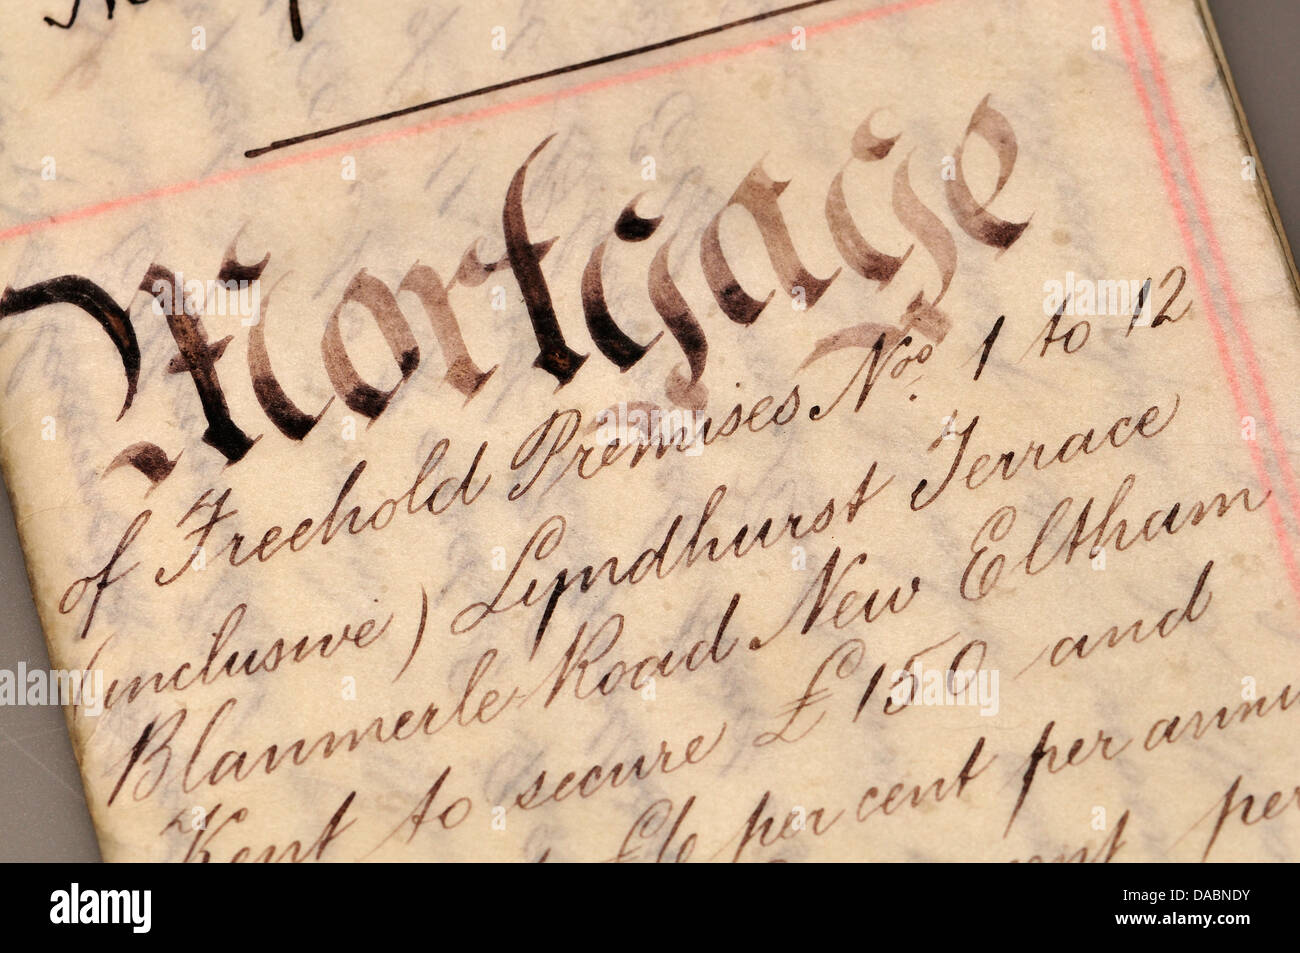 Mortgage
of Freehold Premises Nos. 1 to 12
(inclusive) Lyndhurst Terrace
Blanmerle Road New Eltham
Kent to secure £150 and
£6 per cent per annu
cent per
alamy
Image ID: DABNDY
www.alamy.com